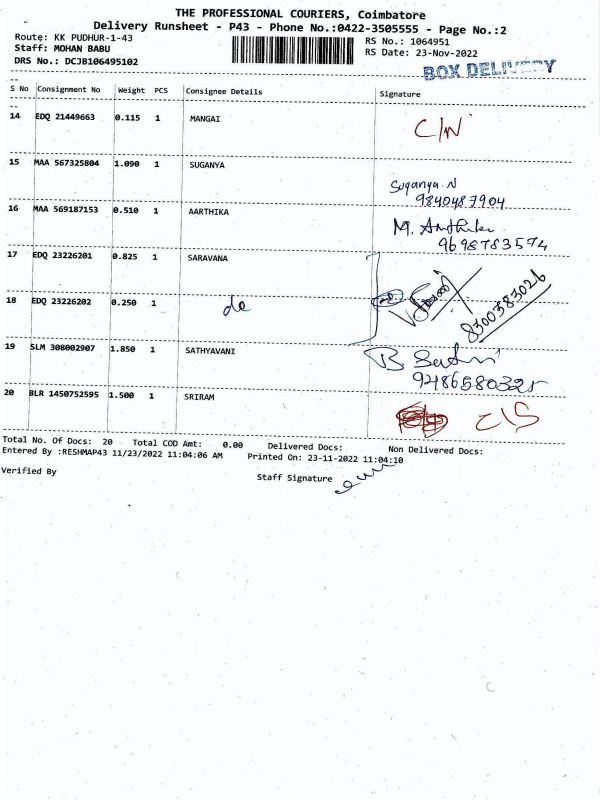 THE PROFESSIONAL COURIERS, Coimbatore
Delivery Runsheet - P43 - Phone No.:0422-3505555 - Page No.:2
Route: KK PUDHUR-1-43 RS No.: 1064951
Staff: MOHAN BABU RS Date: 23-Nov-2022
DRS No.: DCJB106495102
BOX DELIVERY
S No Consignment No Weight PCS Consignee Details Signature
14 EDQ 21449663 0.115 1 MANGAI C/N
15 MAA 567325804 1.090 1 SUGANYA Suganya N
9840487904
16 MAA 569187153 0.510 1 AARTHIKA M. Aarthika
9698783574
17 EDQ 23226201 0.825 1 SARAVANA
18 EDQ 23226202 0.250 1 do 8300383026
19 SLM 308002907 1.850 1 SATHYAVANI B.
9486580325
20 BLR 1450752595 1.500 1 SRIRAM C/S
Total No. Of Docs: 20 Total COD Amt: 0.00 Delivered Docs: Non Delivered Docs:
Entered By :RESHMAP43 11/23/2022 11:04:06 AM Printed On: 23-11-2022 11:04:10
Verified By Staff Signature